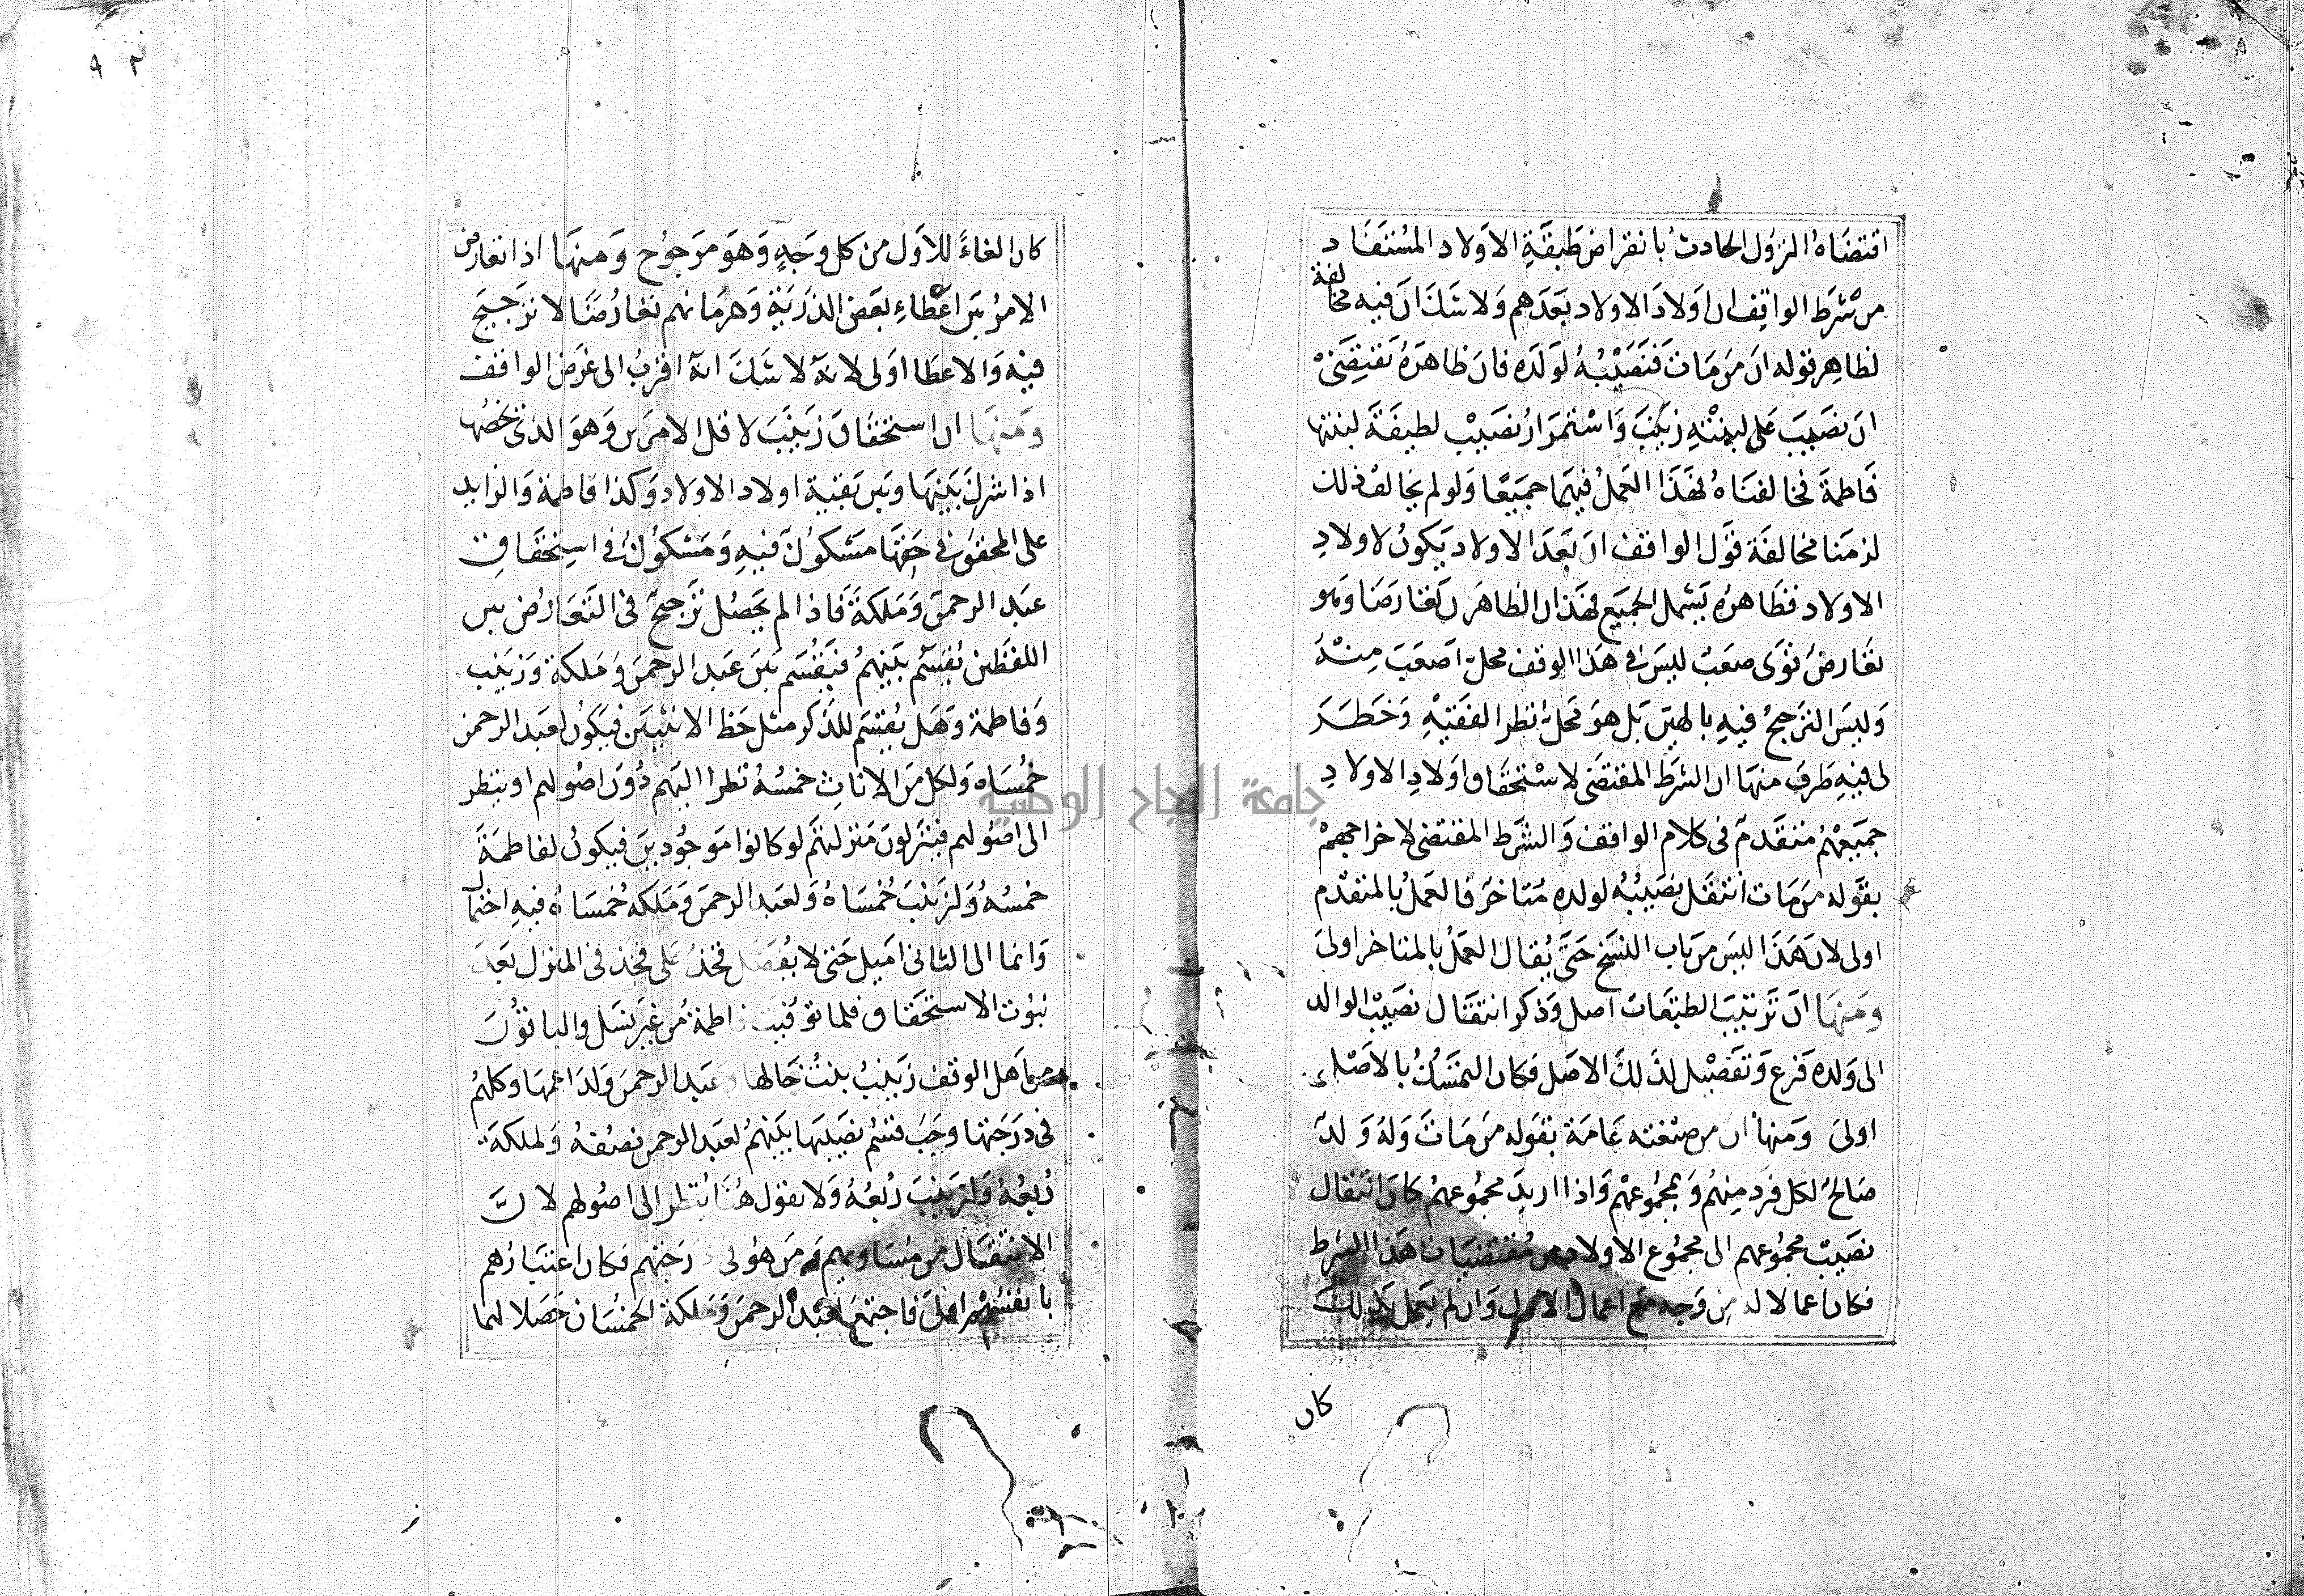 اقتضاه النزول الحادث بانقراض طبقة الاولاد المستفاد
من شرط الواقف ان اولاد الاولاد بعدهم ولا شك ان فيه مخالفة
لظاهر قوله ان من مات فنصيبه لولده فان ظاهره يقتضي
ان نصيب على لبنته زينب واستمرار نصيب لطيفة لبنتها
فاطمة فخالفناه لهذا العمل فيهما جميعا ولو لم يخالف ذلك
لزمنا مخالفة قول الواقف ان بعد الاولاد يكون لاولاد
الاولاد فظاهره يشمل الجميع فهذان الظاهران تعارضا وهو
تعارض قوى صعب ليس في هذا الوقف محل اصعب منه
وليس الترجيح فيه بالهين بل هو محل نظر الفقيه وخطر
لى فيه طرق منها ان الشرط المقتضى لاستحقاق اولاد الاولاد
جميعهم متقدم فى كلام الواقف والشرط المقتضى لاخراجهم
بقوله من مات انتقل نصيبه لولده متاخر فالعمل بالمتقدم
اولى لان هذا ليس من باب النسخ حتى يقال العمل بالمتاخر اولى
ومنها ان ترتيب الطبقات اصل وذكر انتقال نصيب الوالد
الى ولده فرع وتفصيل لذلك الاصل فكان التمسك بالاصل
اولى ومنها ان من صيغته عامة بقوله من مات وله ولد
صالح لكل فرد منهم وبمجموعهم واذا اريد مجموعهم كان انتقال
نصيب مجموعهم الى مجموع الاولاد من مقتضيات هذا الشرط
فكان اعمالا له من وجه مع اعمال الاول وان لم يعمل بذلك
كان
٩٢
كان الغاء للاول من كل وجه وهو مرجوح ومنها اذا تعارض
الامر بين اعطاء بعض الذرية وحرمانهم تعارضا لا ترجيح
فيه والاعطا اولى لانه لا شك انه اقرب الى غرض الواقف
ومنها ان استحقاق زينب لاقل الامرين وهو الذى يخصها
اذا شرك بينها وبين بقية اولاد الاولاد وكذا فاطمة والزايد
على المحقق فى حقها مشكوك فيه ومشكوك فى استحقاق
عبد الرحمن وملكة فاذا لم يحصل ترجيح فى التعارض بين
اللفظين نقسم بينهم فيقسم بين عبد الرحمن وملكة وزينب
وفاطمة وهل يقسم للذكر مثل حظ الانثيين فيكون لعبد الرحمن
خمساه ولكل من الاناث خمسه نظرا اليهم دون اصولهم او ينظر
الى اصولهم فينزلون منزلتهم لو كانوا موجودين فيكون لفاطمة
خمسه ولزينب خمساه ولعبد الرحمن وملكه خمساه فيه احتمال
وانما الى الثانى اميل حتى لا يفضل فخذ على فخذ فى المنزل بعد
ثبوت الاستحقاق فلما توفيت فاطمة من غير نسل والباقون
من اهل الوقف زينب بنت خالها وعبد الرحمن ولدا عمها وكلهم
فى درجتها وجب قسم نصيبها بينهم لعبد الرحمن نصفه ولملكة
ربعه ولزينب ربعه ولا نقول هنا ينظر الى اصولهم لان
الانتقال من مساويهم ومن هو فى درجتهم فكان اعتبارهم
بانفسهم اولى فاجتمع لعبد الرحمن وملكة الخمسان حصلا لهما
جامعة النجاح الوطنية